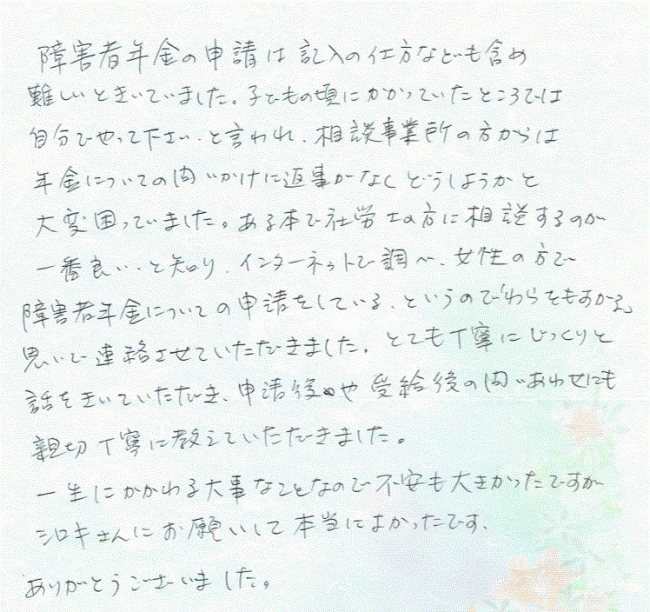 障害者年金の申請は記入の仕方なども含め
難しいときいていました。子どもの頃にかかっていたところでは
自分でやって下さい、と言われ、相談事業所の方からは
年金についての問いかけに返事がなくどうしようかと
大変困っていました。ある本で社労士の方に相談するのが
一番良い、と知り、インターネットで調べ、女性の方で
障害者年金についての申請をしている、というので「わらをもすがる」
思いで連絡させていただきました。とても丁寧にじっくりと
話をきいていただき、申請後や受給後の問いあわせにも
親切丁寧に教えていただきました。
一生にかかわる大事なことなので不安も大きかったですが
シロキさんにお願いして本当によかったです。
ありがとうございました。